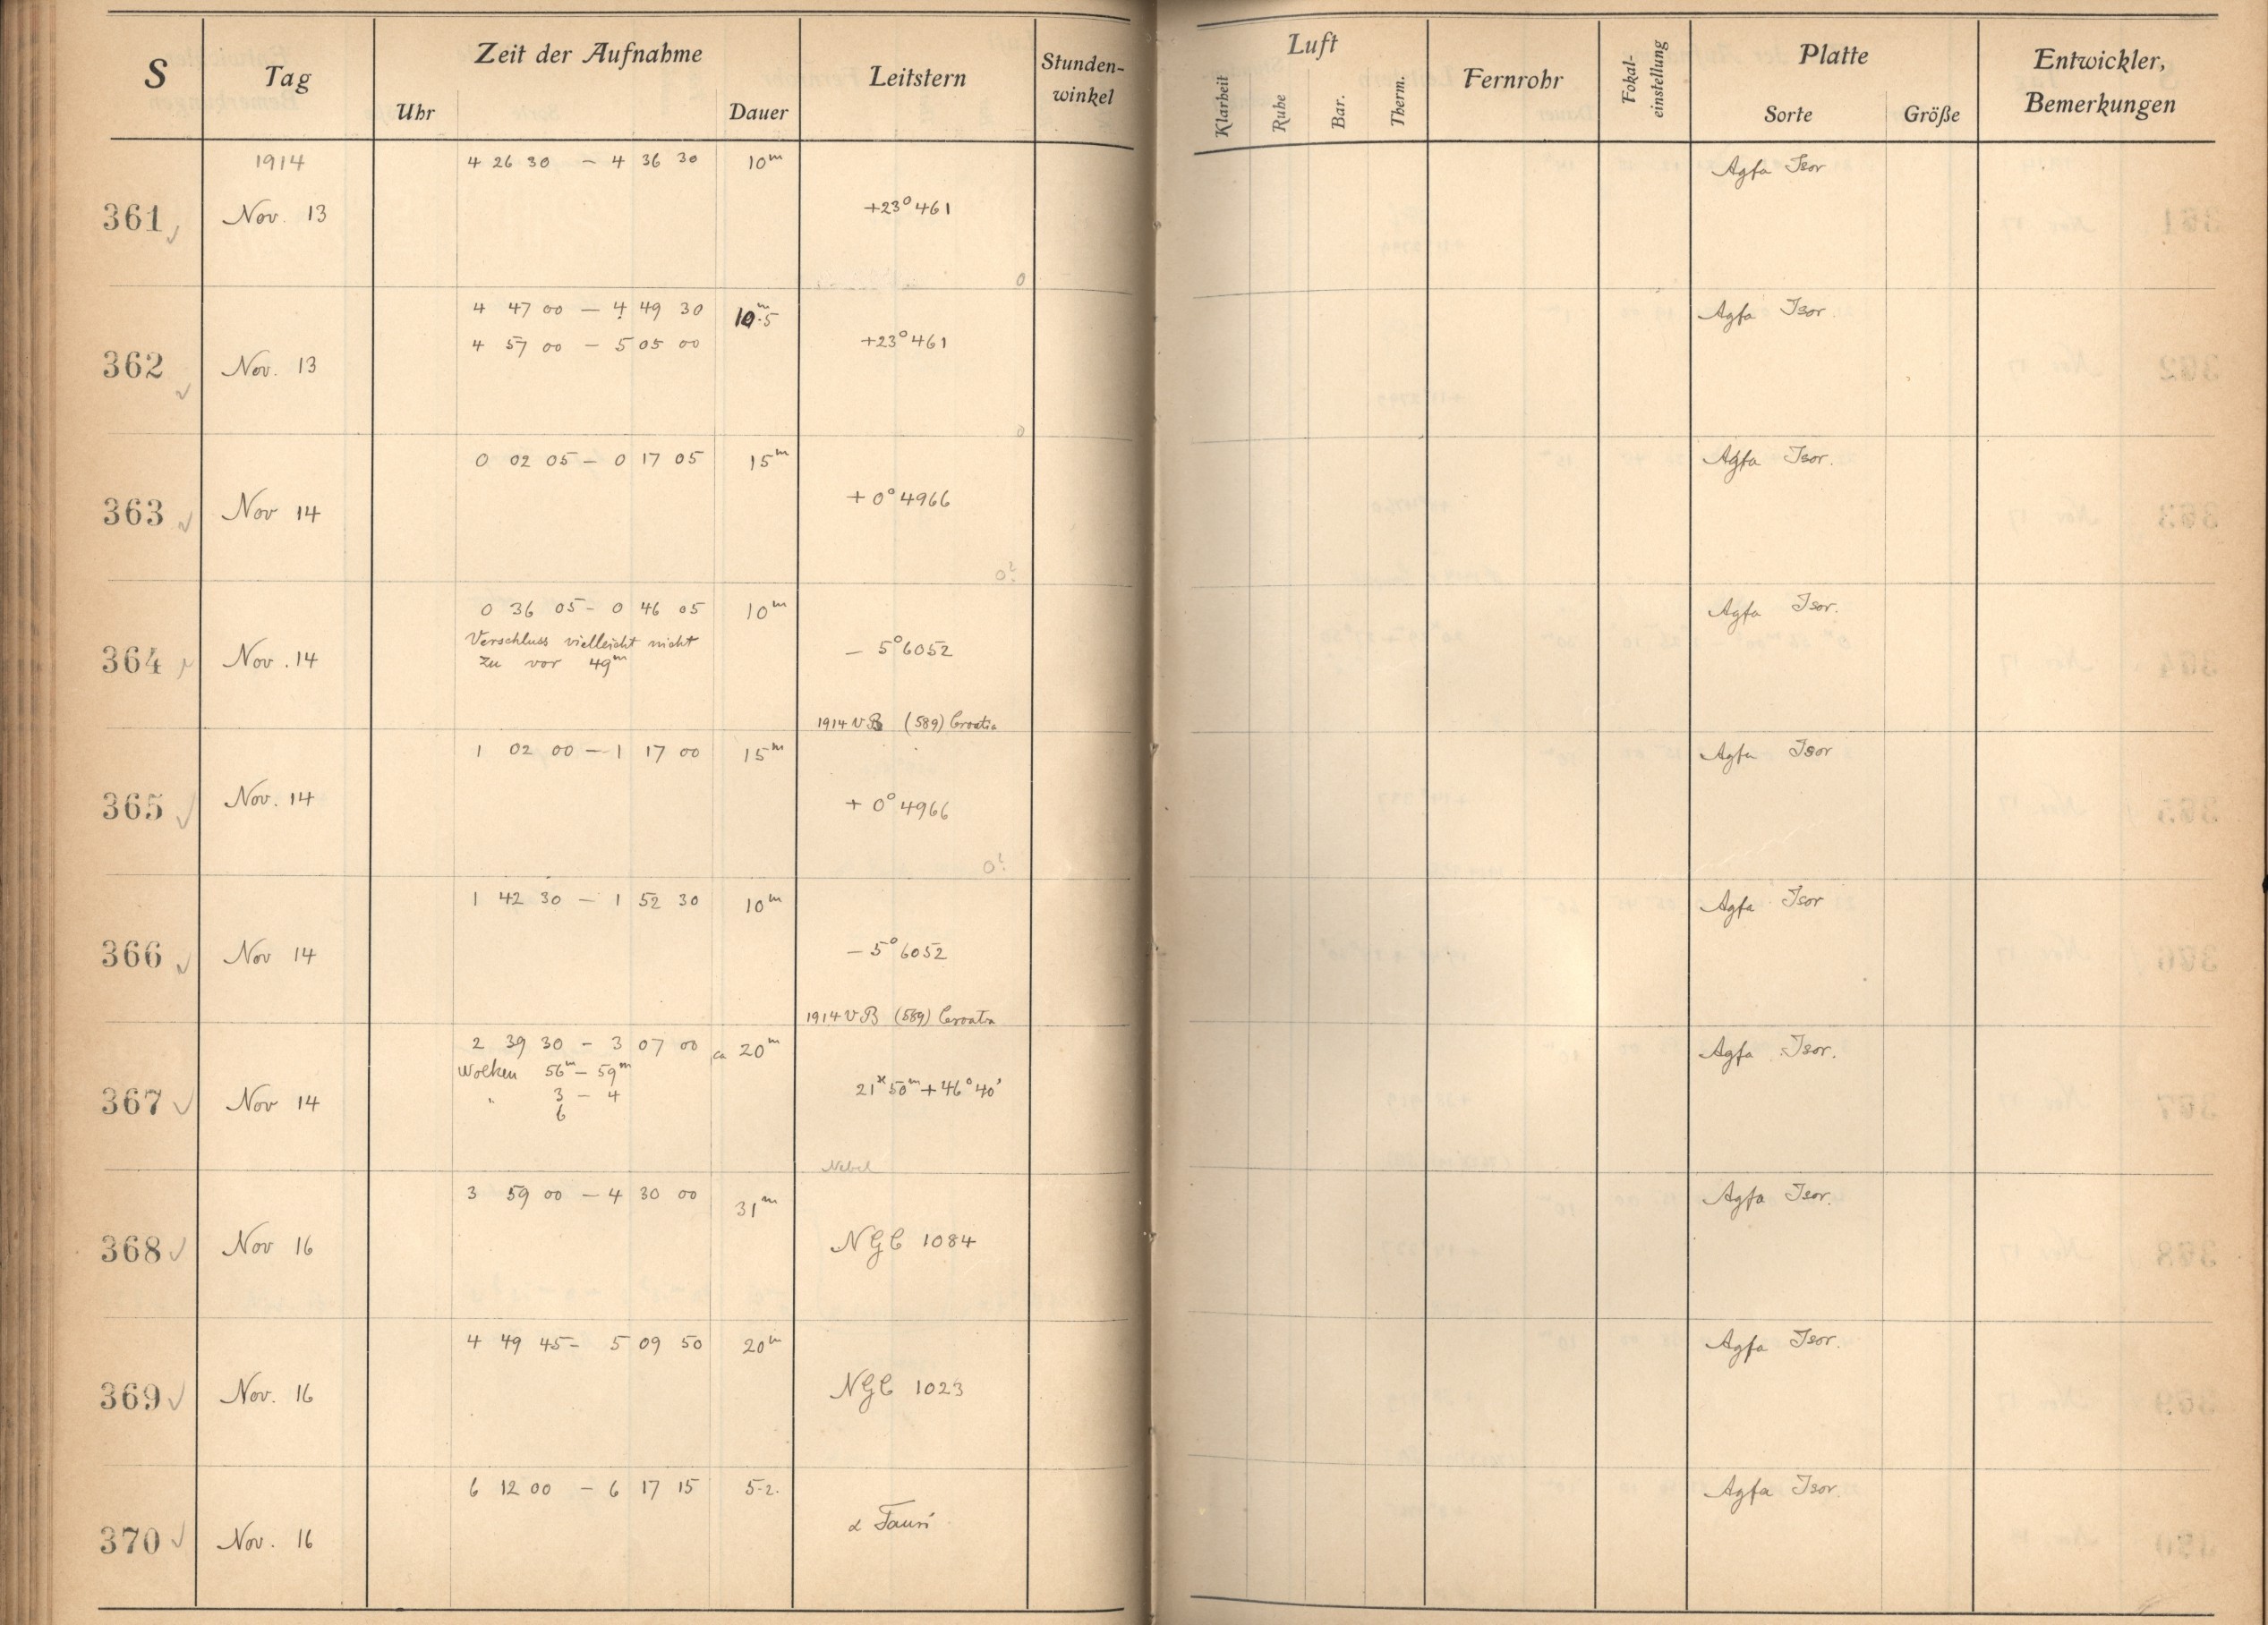 S Tag Zeit der Aufnahme Leitstern Stunden-winkel Luft Fernrohr Fokal-einstellung Platte Entwickler, Bemerkungen
Uhr Dauer Klarheit Ruhe Bar. Therm. Sorte Größe
1914 4 26 30 – 4 36 30 10m Agfa Isor
361 Nov. 13 +23°461
0
4 47 00 – 4 49 30 10m.5 Agfa Isor.
4 57 00 – 5 05 00 +23°461
362 Nov. 13
0
0 02 05 – 0 17 05 15m Agfa Isor.
363 Nov 14 + 0°4966
0?
0 36 05 – 0 46 05 10m Agfa Isor.
Verschluss vielleicht nicht
zu vor 49m
364 Nov. 14 – 5°6052
1914 VB (589) Croatia
1 02 00 – 1 17 00 15m Agfa Isor
365 Nov. 14 + 0°4966
0?
1 42 30 – 1 52 30 10m Agfa Isor
366 Nov 14 – 5°6052
1914 VB (589) Croatia
2 39 30 – 3 07 00 ca 20m Agfa Isor.
Wolken 56m – 59m
" 3 – 4
6
367 Nov 14 21x50m + 46°40'
Nebel
3 59 00 – 4 30 00 31m Agfa Isor.
368 Nov 16 NGC 1084
4 49 45 – 5 09 50 20m Agfa Isor.
369 Nov. 16 NGC 1023
6 12 00 – 6 17 15 5.2. Agfa Isor.
370 Nov. 16 α Tauri